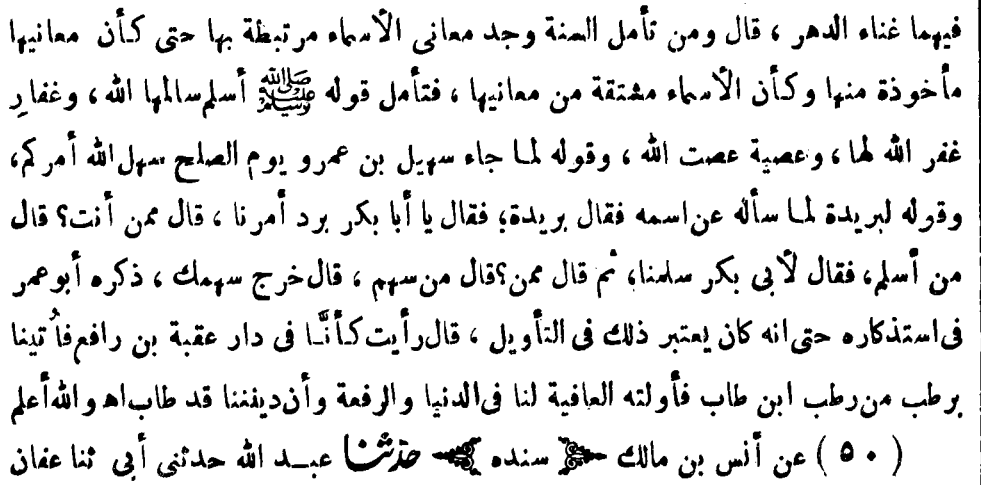 فيهما غناء الدهر ، قال ومن تأمل السنة وجد معانى الأسماء مرتبطة بها حتى كأن معانيها
مأخوذة منها وكأن الأسماء مشتقة من معانيها ، فتأمل قوله ﷺ أسلم سالمها الله ، وغفار
غفر الله لها ، وعصية عصت الله ، وقوله لما جاء سهيل بن عمرو يوم الصلح سهل الله أمركم،
وقوله لبريدة لما سأله عن اسمه فقال بريدة؛ فقال يا أبا بكر برد أمرنا ، قال ممن أنت؟ قال
من أسلم، فقال لأبى بكر سلمنا؛ ثم قال ممن؟ قال من سهم ، قال خرج سهمك ، ذكره أبو عمر
فى استذكاره حتى انه كان يعتبر ذلك فى التأويل ، قال رأيت كأنَّا فى دار عقبة بن رافع فأُتينا
برطب من رطب ابن طاب فأولته العافية لنا فى الدنيا والرفعة وأن ديننا قد طاب اه والله أعلم
( ٥٠ ) عن أنس بن مالك سنده حدّثنا عبد الله حدثنى أبى ثنا عفان